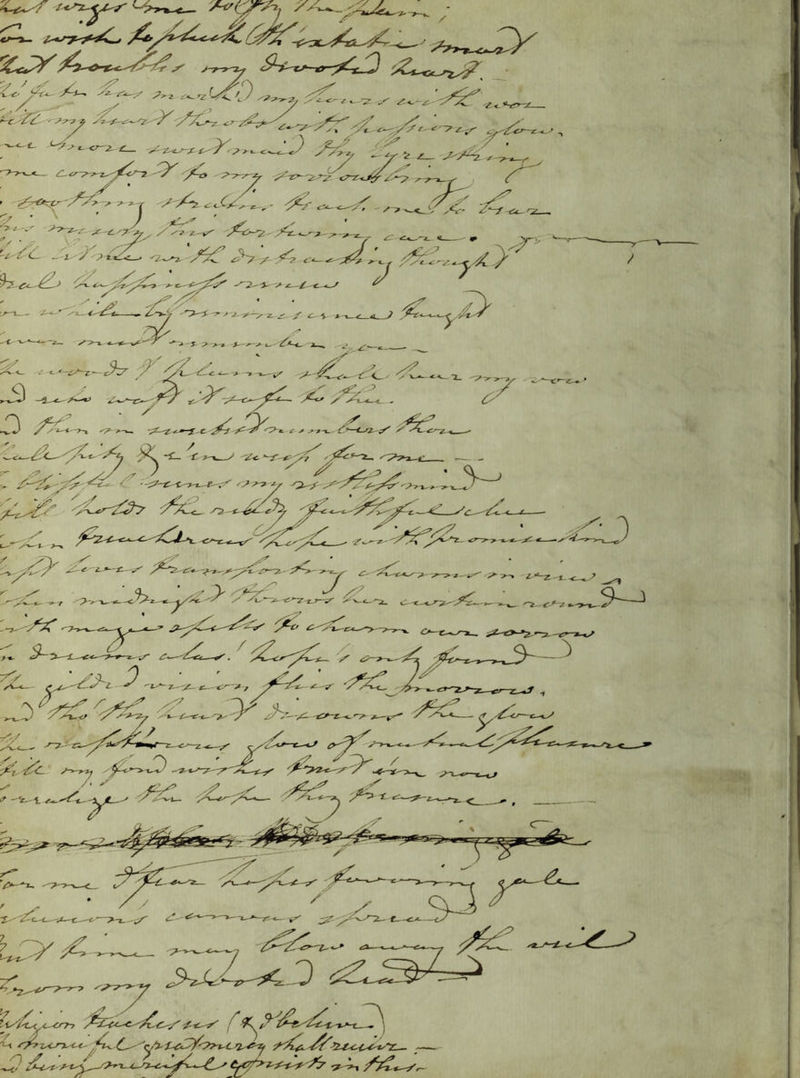 urges me to fly the
wish to pluck th' extatic smart
that troubles my devoted heart.
fate has mark'd my hours with woe
still my heart throbs with passions glow,
more sweet maid thy lyre string
comfort to my sorrows bring
soothing strains teach me to bear
misery this torturing care.
still let me with distracting thought
happiness review
while by reminiscence taught
must remember you
words of Phaens shall hear my vow
waft it safe to thee.
then in sweetest numbers thou
shall pity & e'en weep for me
blissful scenes my restless mind
still holds the ready faithful clue
when treacherous hope with promise kind
left loves transporting charms in view
when midnight throws her curtain round
with magic spells to charm our sorrow
in dreams alas! hope's only found
the gilded vision flies the morrow,
and tho' thy heart disowns the glow
the rapturous glow of mutual pleasure
still my fond wishes trust e'en now
the hope they treasure.
for me I fear hopes favoring gale
delusion's canvas spread
but time may blow away the veil
from my devoted head
Religion teaches us (& I believe)
the merciful great mercy shall receive
being merciful consists in this